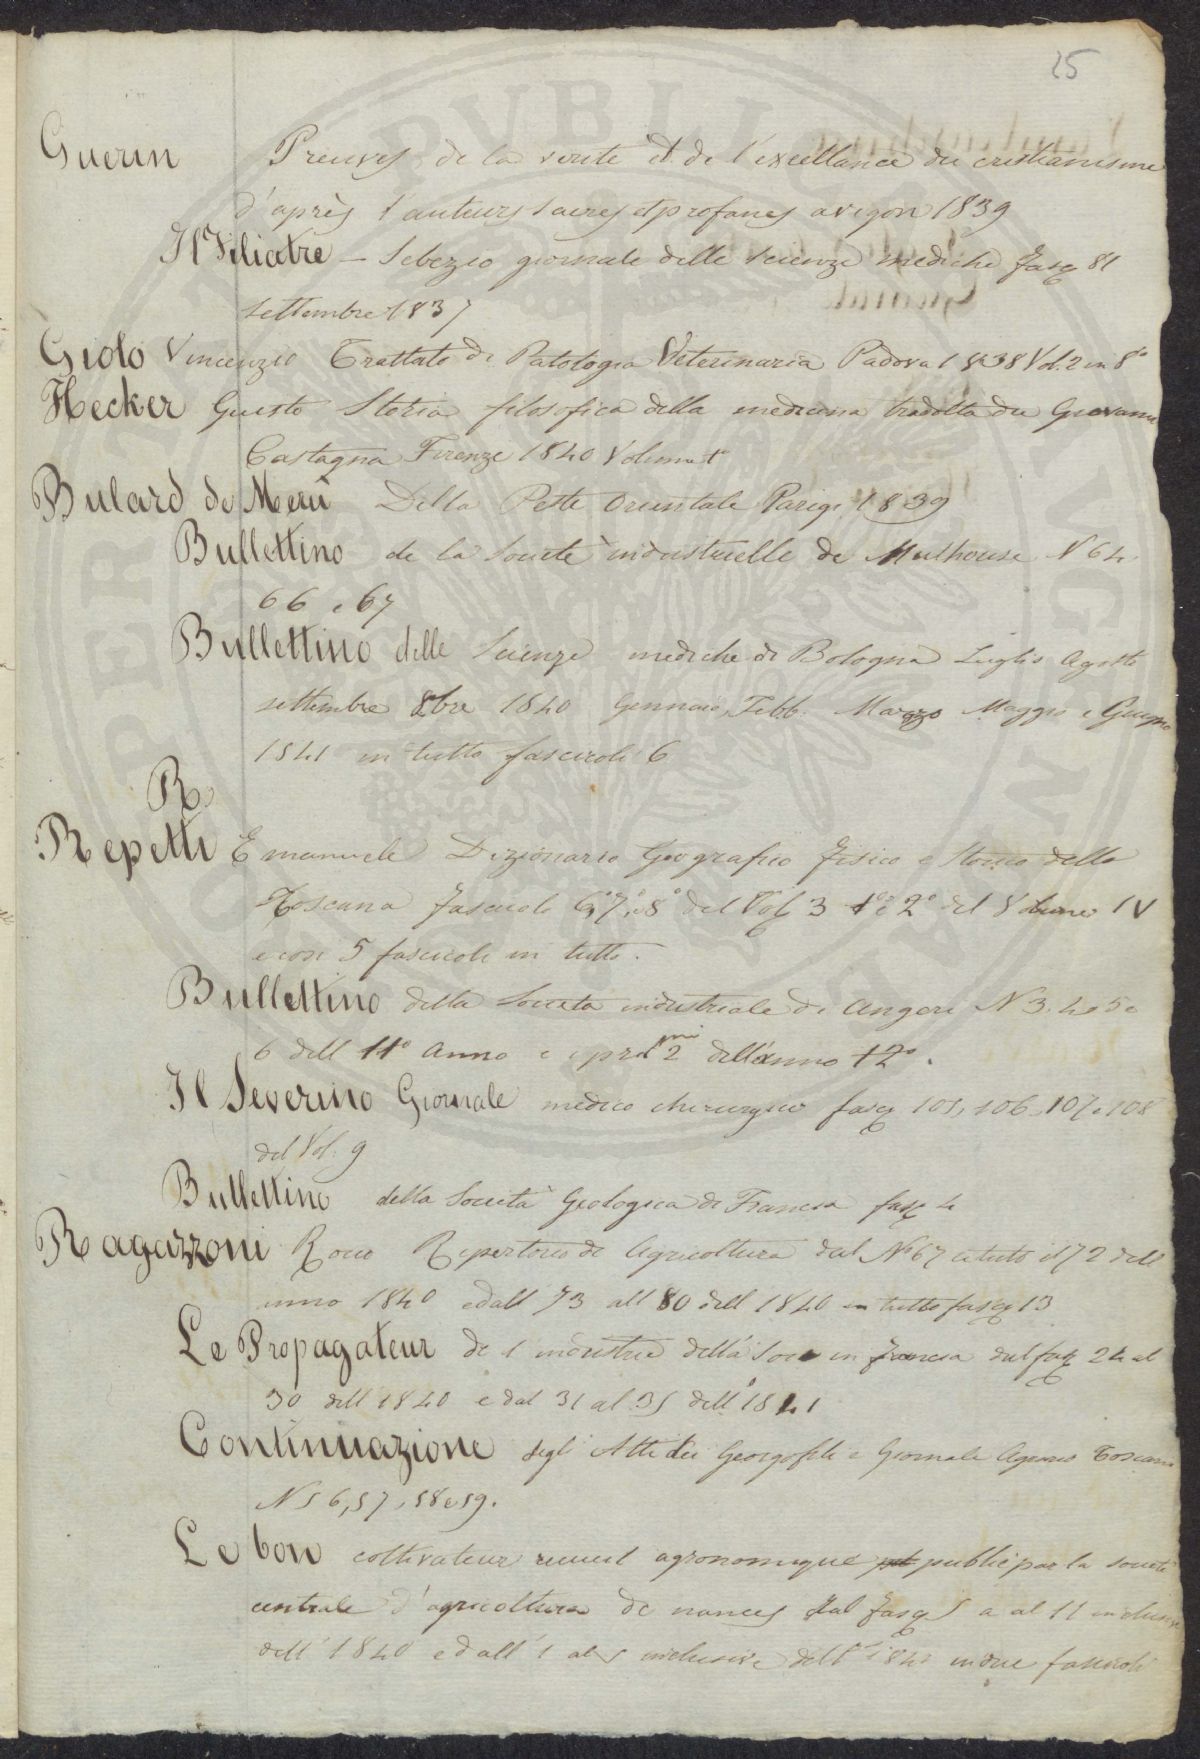 25
Guerin Preuves de la verite et de l'excellance du cristianisme
d'après l'auteurs sacres et profanes avigon 1839
Il Filiatre – Sebezio giornale delle scienze mediche Fasc 81
settembre 1837
Giolo Vincenzio Trattato di Patologia Veterinaria Padova 1838 Vol. 2 in 8°
Hecker Giusto Storia filosofica della medicina tradotta da Giovanni
Castagna Firenze 1840 Volume 1°
Bulard de Merù Della Peste Orientale Parigi 1839
Bullettino de la Société industrielle de Mulhouse N 64
66 e 67
Bullettino delle Scienze mediche di Bologna Luglio Agosto
settembre 8bre 1840 Gennaio, Febb. Marzo Maggio e Giugno
1841 in tutto fascicoli 6
R
Repetti Emanuele Dizionario Geografico fisico e Storico della
Toscana fascicolo 6° 7° e 8° del Vol 3 1° e 2° del Volume IV
e cosi 5 fascicoli in tutto.
Bullettino della Società industriale di Angers N 3. 4 e 5 e
6 dell 11° Anno e i pri mi 2 dell'anno 12°.
Il Severino Giornale medico chirurgico fasc 105, 106, 107 e 108
del Vol. 9
Bullettino della Società Geologica di Francia fasc 4
Ragazzoni Rocco Repertorio di Agricoltura dal N° 67 a tutto il 72 dell
anno 1840 e dall 73 all 80 dell 1840 in tutto fasc 13
Le Propagateur de l industrie della Soie in Francia dal fasc 24 al
30 dell 1840 e dal 31 al 35 dell 1841
Continuazione degli Atti dei Georgofili e Giornale Agrario Toscano
N 56, 57, 58 e 59.
Le bon coltivateur recueil agronomique publié par la société
centrale d'agricolture de nancy dal fasc 5 a al 11 inclusive
dell' 1840 e dall' 1 al 5 inclusive dell 1841 in due fascicoli